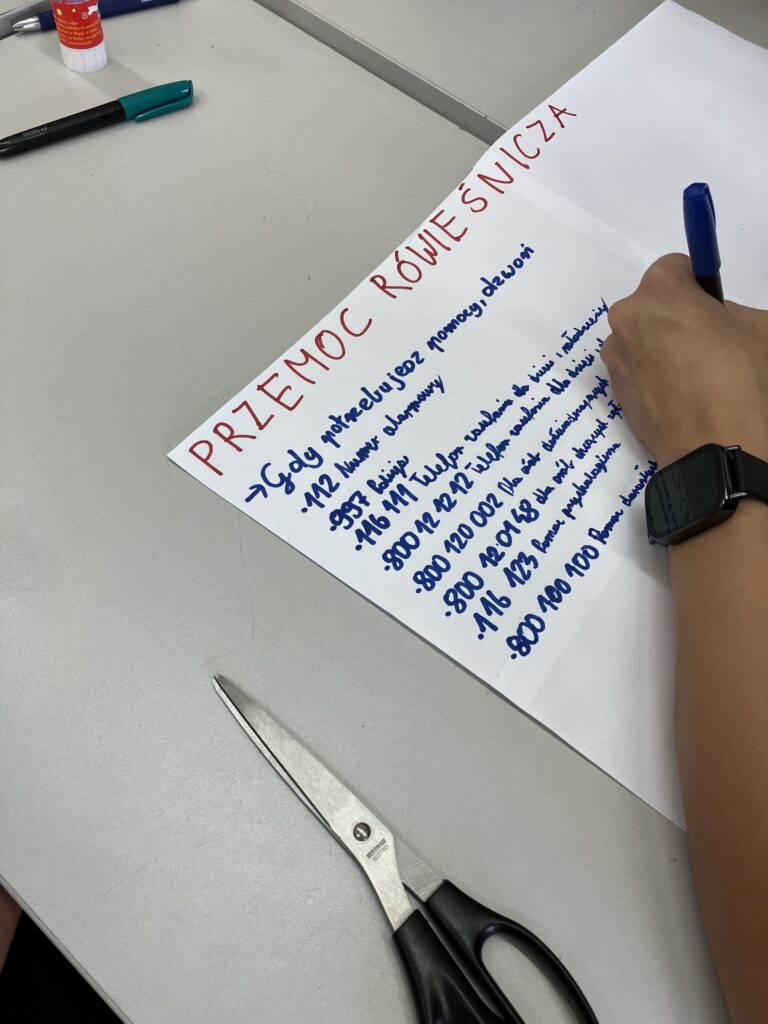 PRZEMOC RÓWIEŚNICZA
→ Gdy potrzebujesz pomocy, dzwoń
·112 Numer alarmowy
·997 Policja
·116 111 Telefon zaufania do dzieci i młodzieży
·800 12 12 12 Telefon zaufania dla dzieci
·800 120 002 Dla osób doświadczających
·800 12 01 48 dla osób
·116 123 Pomoc psychologiczna
·800 100 100 Pomoc